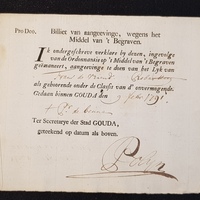 Pro Deo. Billiet van aangeevinge, wegens het
Middel van 't Begraven.
Ik ondergeschreve verklare by dezen, ingevolge
van de Ordonnantie op 't Middel van 't Begraven
geëmaneert, aangeevinge te doen van het Lyk van
als gehoorende onder de Classis van d' onvermogende.
Gedaan binnen GOUDA den 1791
Ter Secretarye der Stad GOUDA,
geteekend op datum als boven.